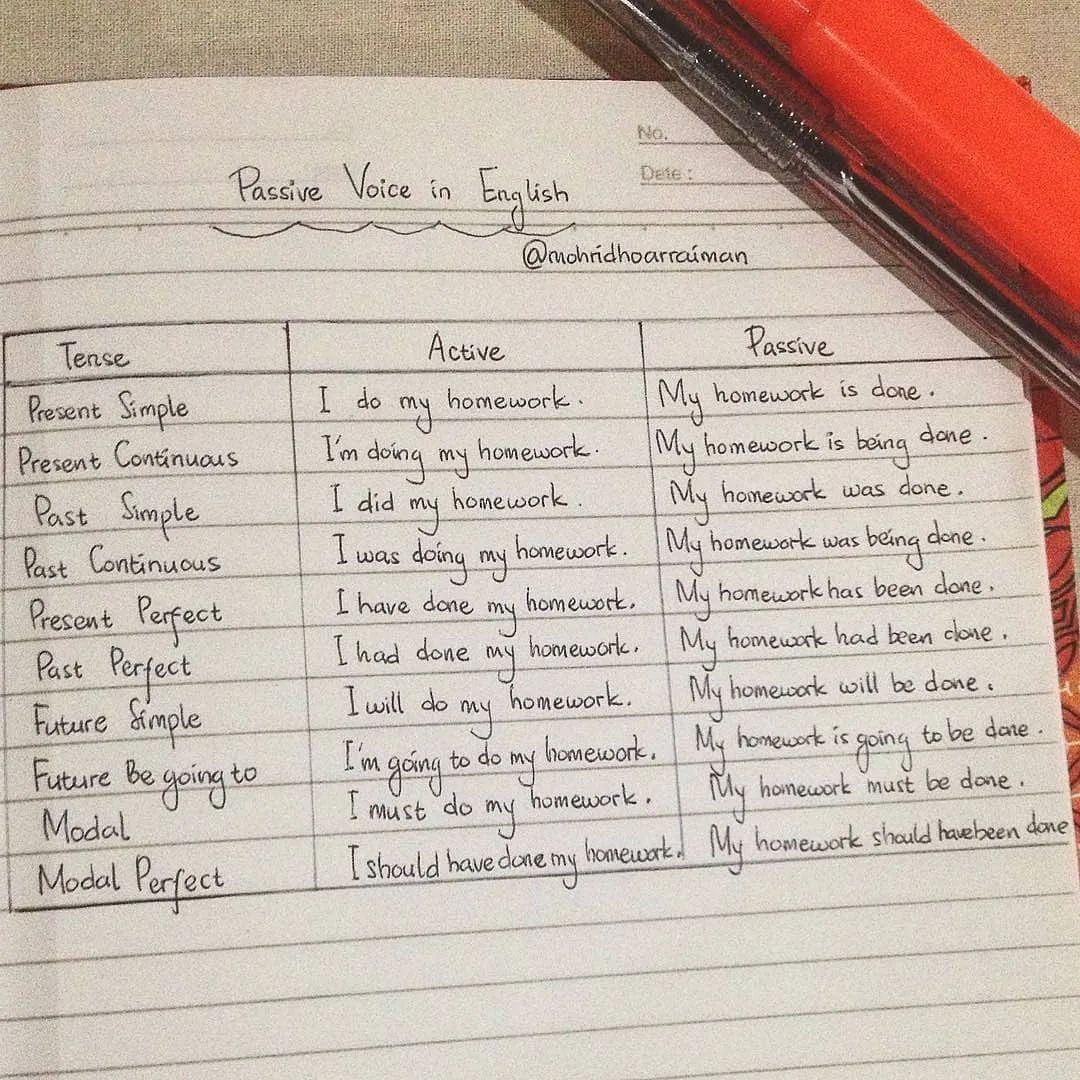 No.
Date:
Passive Voice in English
@mohridhoarraiman
Tense Active Passive
Present Simple I do my homework. My homework is done.
Present Continuous I'm doing my homework. My homework is being done.
Past Simple I did my homework. My homework was done.
Past Continuous I was doing my homework. My homework was being done.
Present Perfect I have done my homework. My homework has been done.
Past Perfect I had done my homework. My homework had been done.
Future Simple I will do my homework. My homework will be done.
Future Be going to I'm going to do my homework. My homework is going to be done.
Modal I must do my homework. My homework must be done.
Modal Perfect I should have done my homework. My homework should have been done